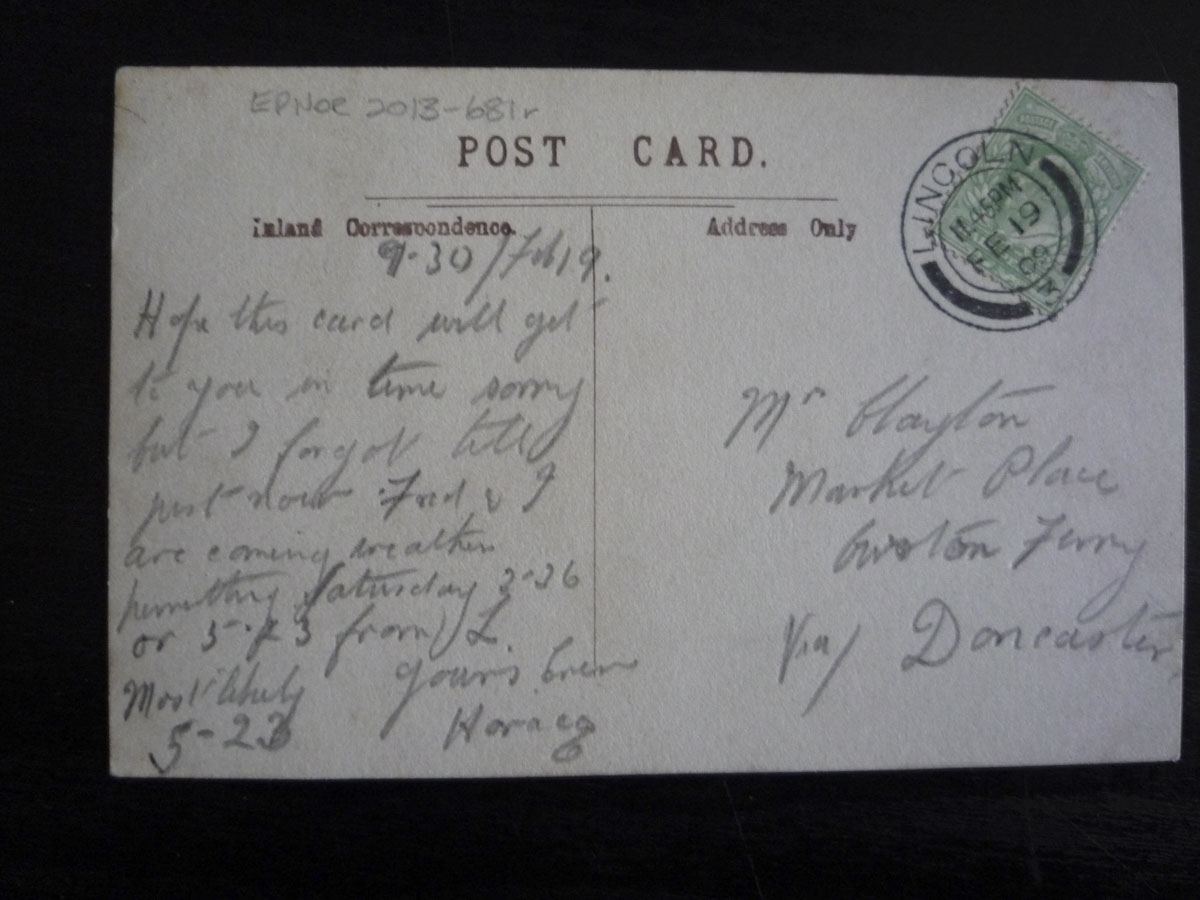 EPNOE 2013-681r
POST CARD.
Inland Correspondence.
Address Only
LINCOLN
11.45PM
FE 19
09
9-30 / Feb 19.
Hope this card will get
to you in time sorry
but I forgot till
just now Fred & I
are coming weather
permitting Saturday 3-26
or 5-23 from L.
Most likely
5-23
yours
Horace
Mr Clayton
Market Place
Owston Ferry
Via / Doncaster